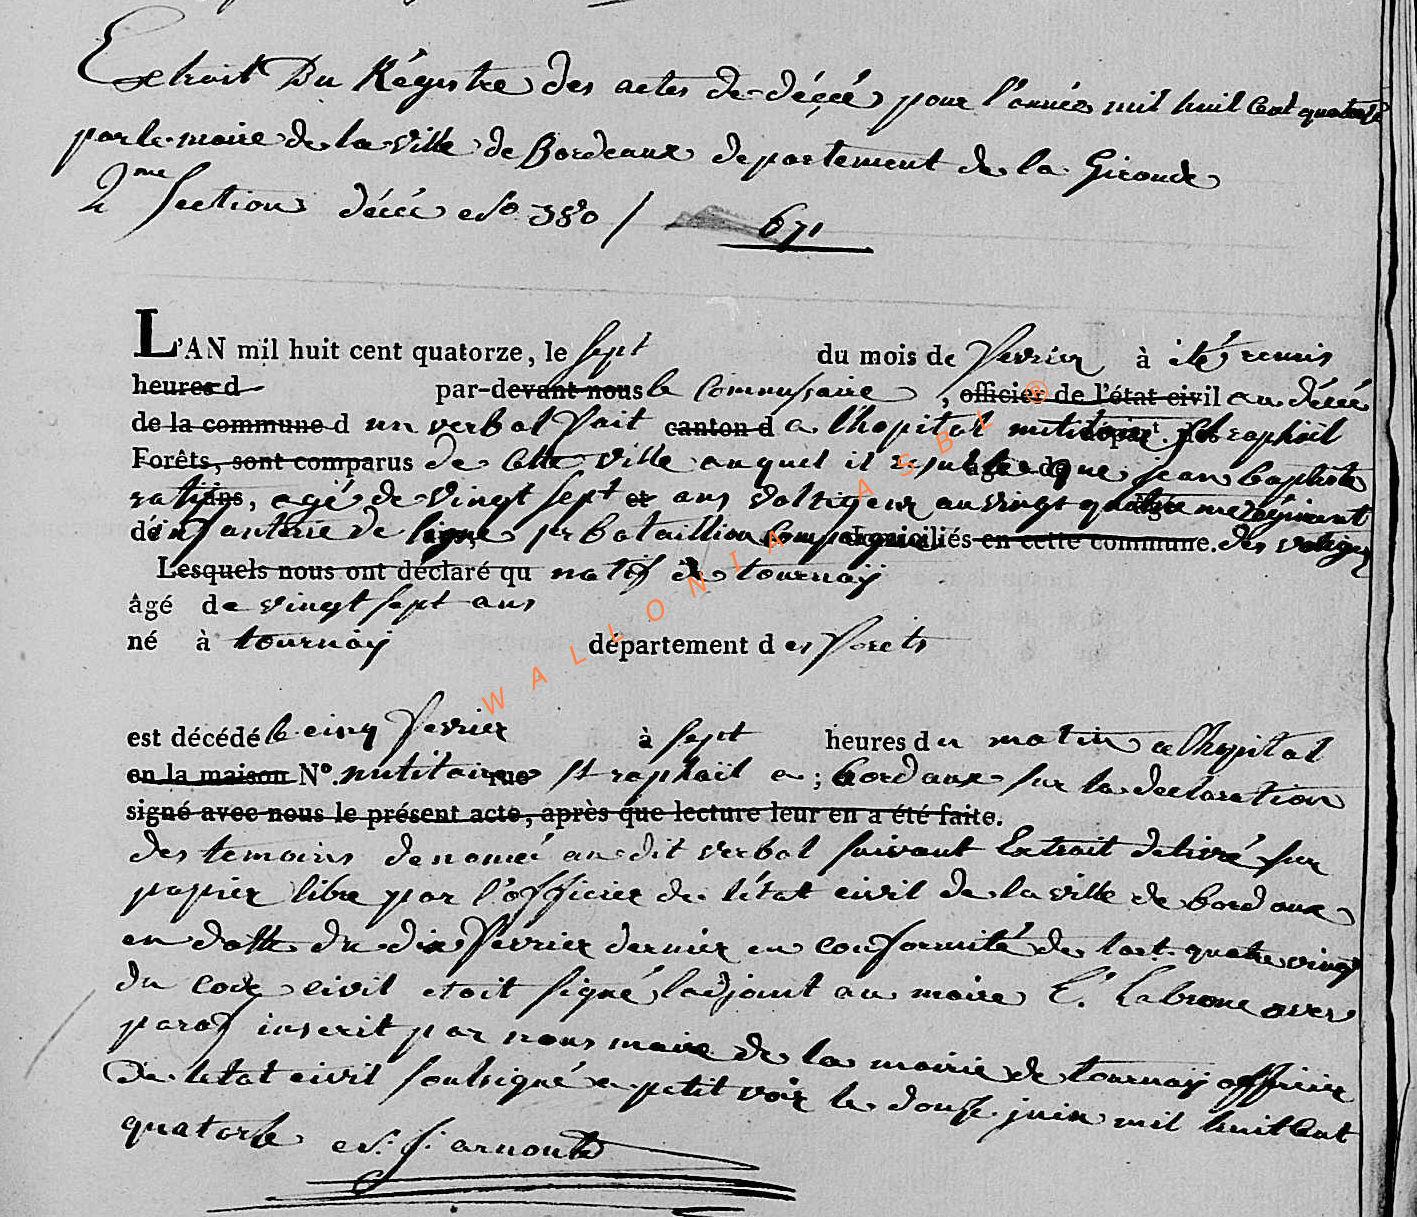 Extrait Du Régistre des actes de décés pour l'année mil huit Cent quatorze
par le maire de la ville de Bordeaux departement de la Gironde
2me Section décée No 380 / 671
L'AN mil huit cent quatorze, le sept du mois de fevrier à été remis
heures d par-devant nous le Commissaire , officier de l'état civil au décéé
de la commune d un verbal fait canton d a l'hopital militaire St raphaël
Forêts, sont comparus de Cette ville auquel il resulte que jean baptiste
, agé de vingt sept et ans voltigeur au vingt quatrieme régiment
d'infanterie de ligne 1er bataillion Compagnie domiciliés en cette commune. des voltigeurs
Lesquels nous ont déclaré qu natif de tournay
âgé de vingt sept ans
né à tournay département des forets
est décédé le cinq fevrier à sept heures du matin a l'hopital
en la maison N°. militaire rue St raphaël a ; bordaux sur la declaration
signé avec nous le présent acte, après que lecture leur en a été faite.
des temoins denomé audit verbal suivant Extrait delivré sur
papier libre par l'officier de l'état civil de la ville de bordaux
en datte du dix fevrier dernier en conformité de l'art. quatre vingt
du code civil etoit signé l'adjoint au maire avec
paraf inscrit par nous maire de la mairie de tournay officier
de l'etat civil soulsigné a petit voir le douse juin mil huit Cent
quatorse N. J. arnould
WALLONIA ASBL ®